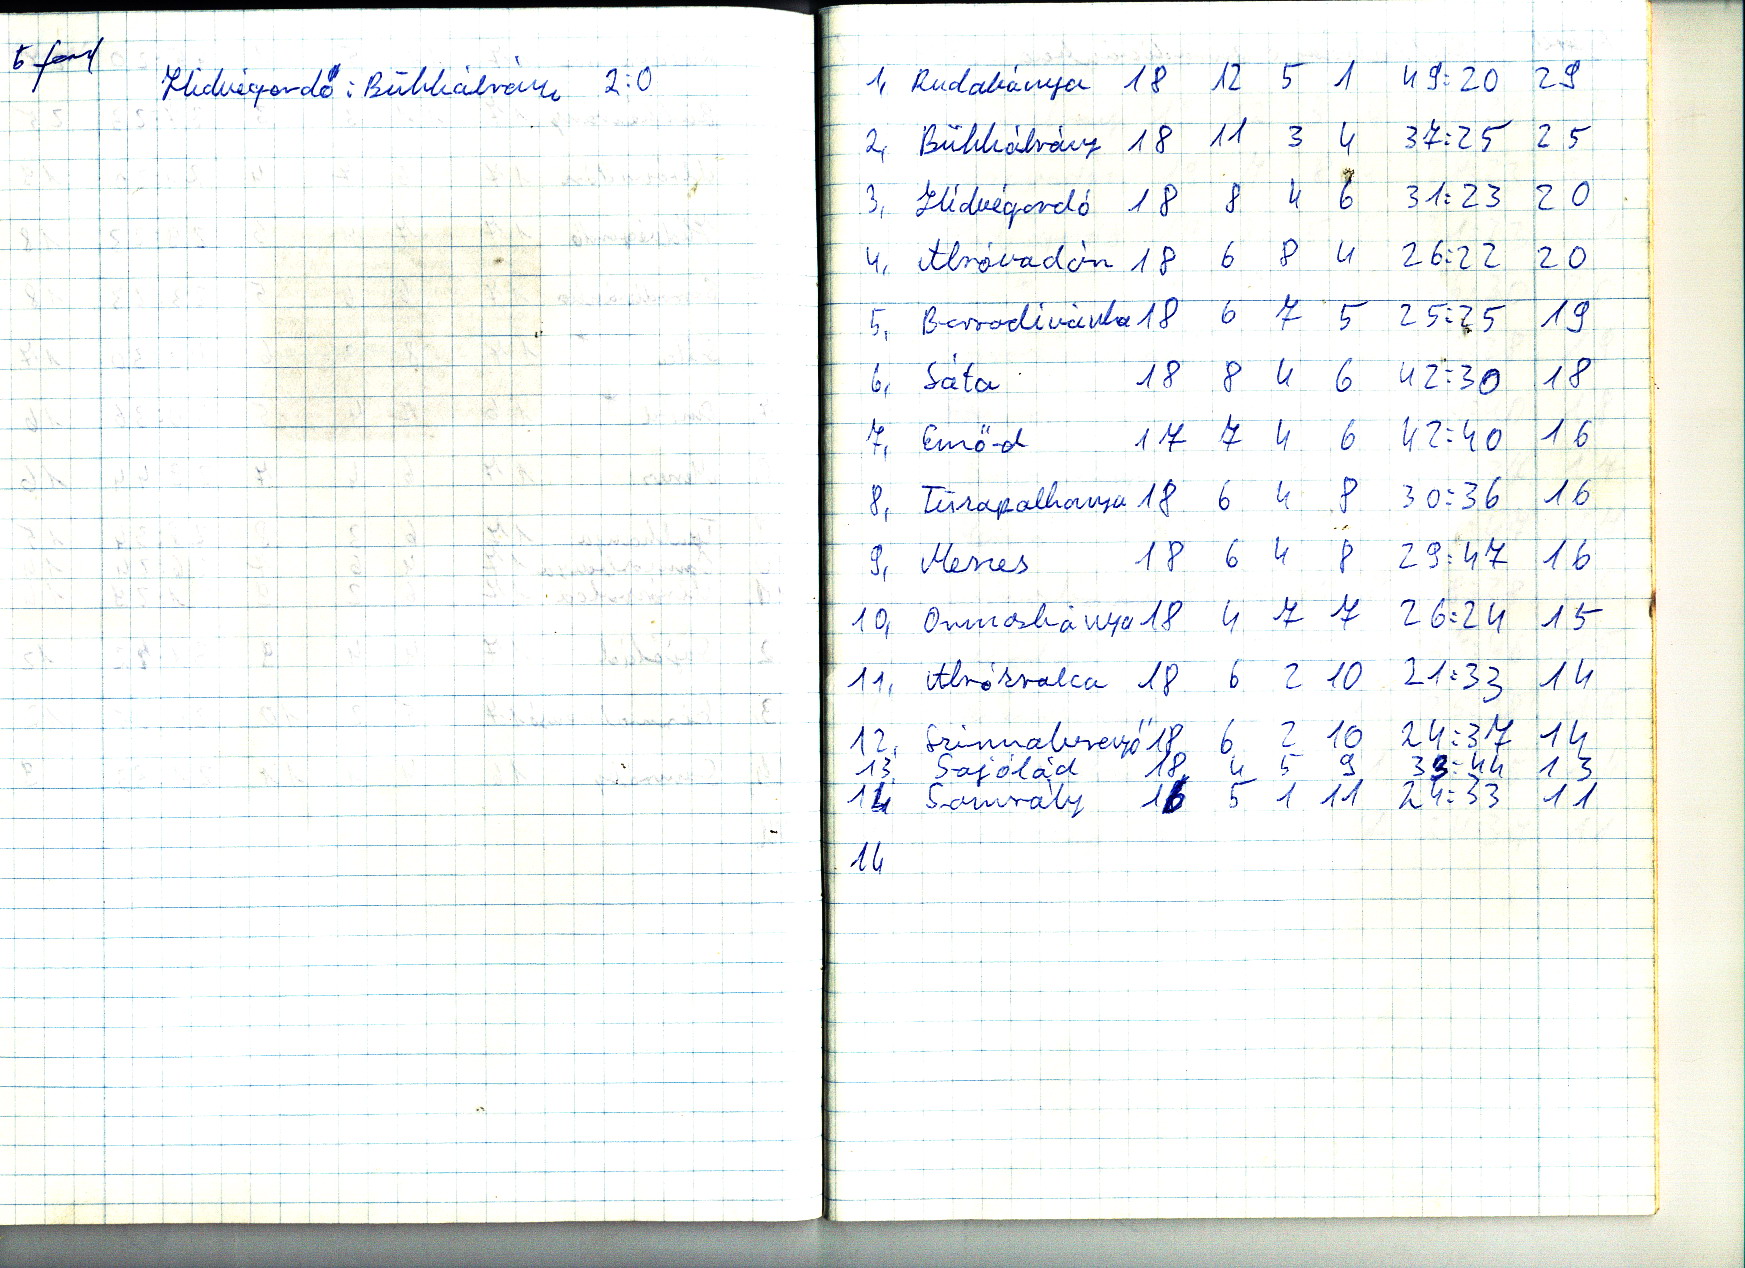 5 ford
Hidvégardó : Bükkábrány 2:0
1, Rudabánya 18 12 5 1 49:20 29
2, Bükkábrány 18 11 3 4 37:25 25
3, Hidvégardó 18 8 4 6 31:23 20
4, Alsóvadász 18 6 8 4 26:22 20
5, Borsodivánka 18 6 7 5 25:25 19
6, Sáta 18 8 4 6 42:30 18
7, Emőd 17 7 4 6 42:40 16
8, Tiszapalkonya 18 6 4 8 30:36 16
9, Meszes 18 6 4 8 29:47 16
10, Ormosbánya 18 4 7 7 26:24 15
11, Alsózsolca 18 6 2 10 21:33 14
12, Szirmabesenyő 18 6 2 10 24:37 14
13 Sajólád 18 4 5 9 33:44 13
14 Sajóvámos 5 1 11 24:33 11
14